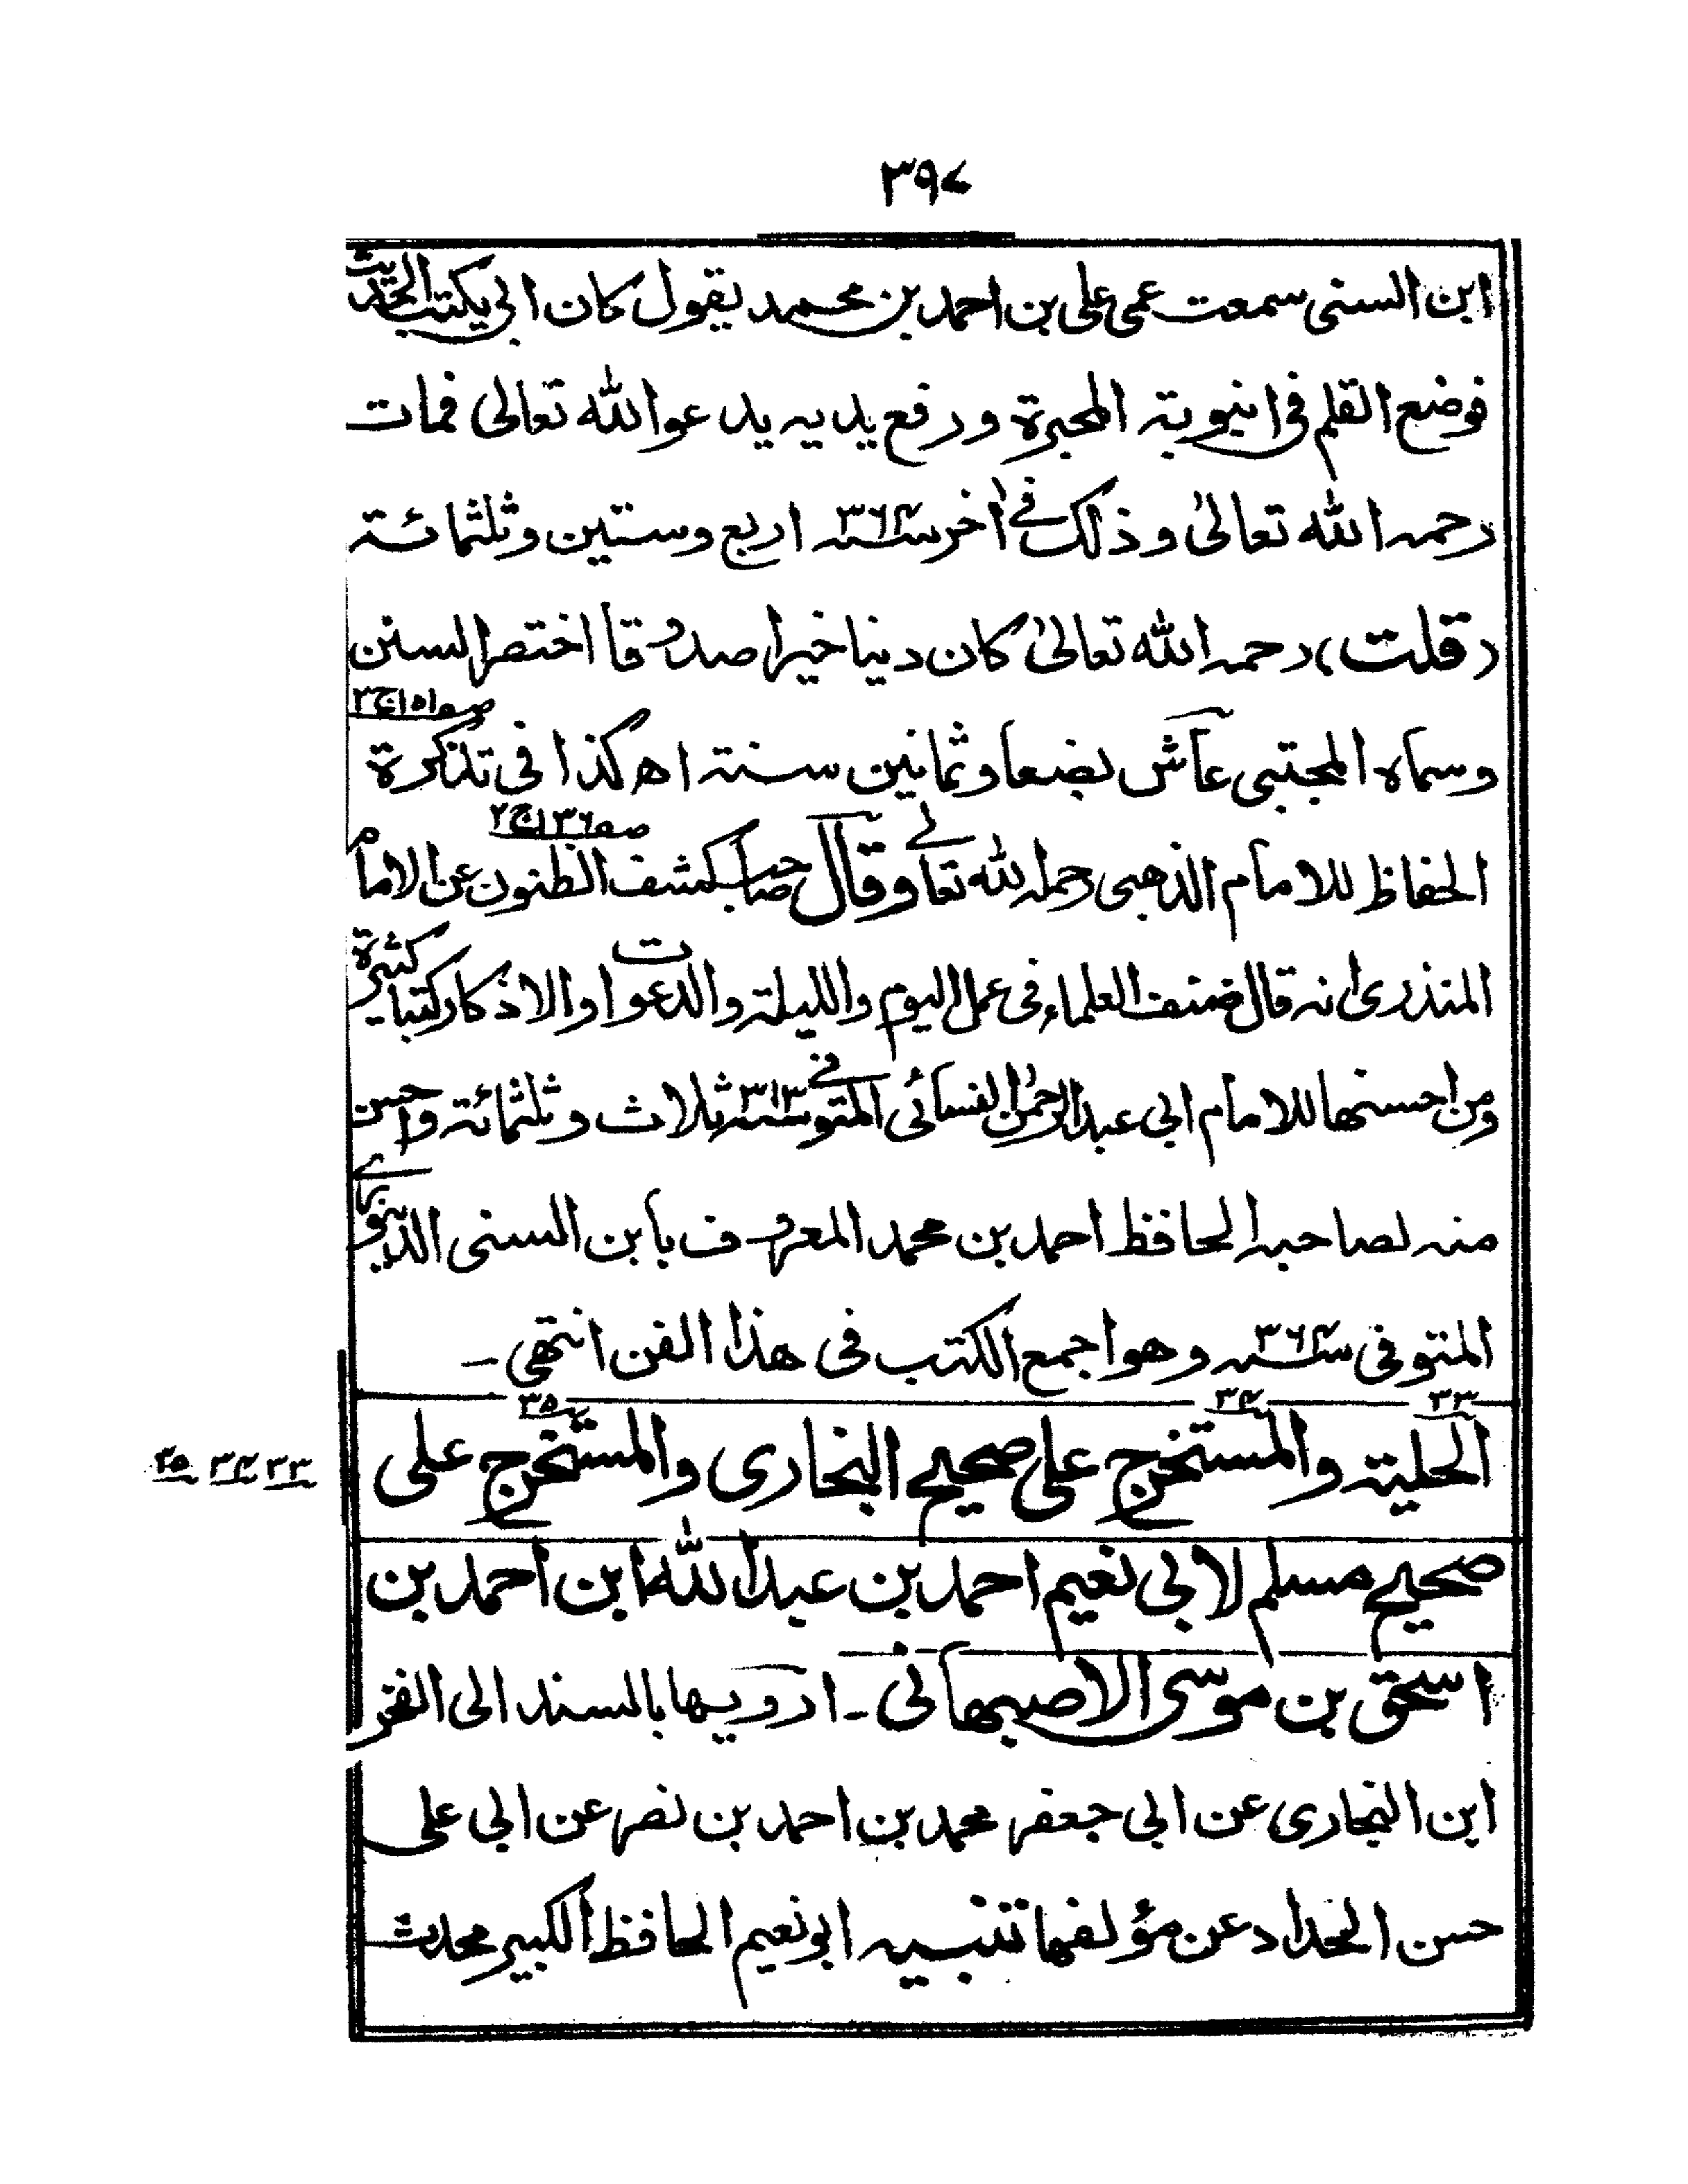 ٣٩٧
ابن السنى سمعت عمى على بن احمد بن محمد يقول كان ابى يكتب الحديث
فوضع القلم فى انبوبة المحبرة ورفع يديه يدعو الله تعالى فمات
رحمه الله تعالىٰ وذٰلك فى اٰخر سنة ٣٦٤ اربع وستين وثلثمائة
(قلت) رحمه الله تعالىٰ كان دينا خيرا صدوقا اختصر السنن
وسماه المجتبى عاش بضعا وثمانين سنة اھ كذا فى تذكرة صـ١٥١ج٣
الحفاظ للامام الذهبى رحمه الله تعالے وقال صاحب كشف الظنون صـ١٣٦ج٢ عن الامام
المنذرى انه قال صنف العلماء فى عمل اليوم والليلة والدعوات والاذكار كتبا كثيرة
ومن احسنها للامام ابى عبد الرحمٰن النسائى المتوفى سنة ٣١٣ ثلاث وثلثمائة واحسن
منه لصاحبه الحافظ احمد بن محمد المعروف بابن السنى الدينورى
المتوفى سنة ٣٦٤ وهو اجمع الكتب فى هذا الفن انتهى ـ
٣٣ الحلية ٣٤ والمستخرج على صحيح البخارى ٣٥ والمستخرج على
٣٣ ٣٤ ٣٥
صحيح مسلم لابى نعيم احمد بن عبد الله ابن احمد بن
اسحٰق بن موسى الاصبهانى ـ ارويها بالسند الى الفخر
ابن البخارى عن ابى جعفر محمد بن احمد بن نصر عن ابى على
حسن الحداد عن مؤلفها تنبيه ابو نعيم الحافظ الكبير محدث